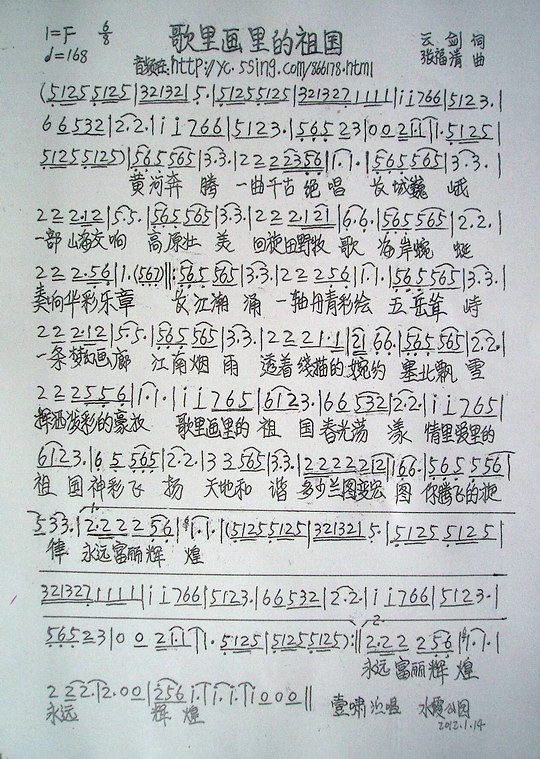 1=F 6/8 歌里画里的祖国 云剑 词
♩=168 音频在:http://yc.5sing.com/866178.html 张福清 曲
(5125 5125|321321 5.|5125 5125|321327 1111|i i766|5123.|
66532|2.2.|i i766|5123.|56523|002 1.1|1.5125|
5125 5125)|565565|3.3.|222 2356|1.1.|565565|3.3.|
黄河奔 腾 一曲千古绝唱 长城巍 峨
222 2.12|5.5.|565565|3.3.|222 2.121|6.6.|565565|2.2.|
一部山海交响 高原壮 美 回旋田野牧 歌 海岸蜿 蜒
222 2.56|1.(567)‖:565565|3.3.|222 256|1.1.|565565|3.3.|
奏响华彩乐章 长江潮 涌 一轴丹青彩绘 五岳耸 峙
222 2.12|5.5.|565565|3.3.|222 1.1|21 66.|565565|2.2.|
一条梦幻画廊 江南烟 雨 透着线描的婉约 塞北飘 雪
222 2556|1.1.|i i765|6123.|66532|2.2|i i765|
挥洒泼彩的豪放 歌里画里的 祖 国春光荡 漾 情里爱里的
6123.|65565|2.2.|33565|3.3.|222 2212|166.|565556|
祖 国神彩飞 扬 天地和 谐 多少兰图变宏 图 你腾飞的旋
533.|2.22256|1.1.|(5125 5125|321321 5.|5125 5125|
律 永远富丽辉 煌
321327 1111|i i766|5123.|66532|2.2|i i766|5123.|
56523|002 1.1|1.5125|5125 5125):‖2.222 256|1.1.|
永远富丽辉 煌
2 222.|2.00|256 i.|i.i.|i000‖ 壹啸北唱 水霞公园
永远 辉 煌 2012.1.14